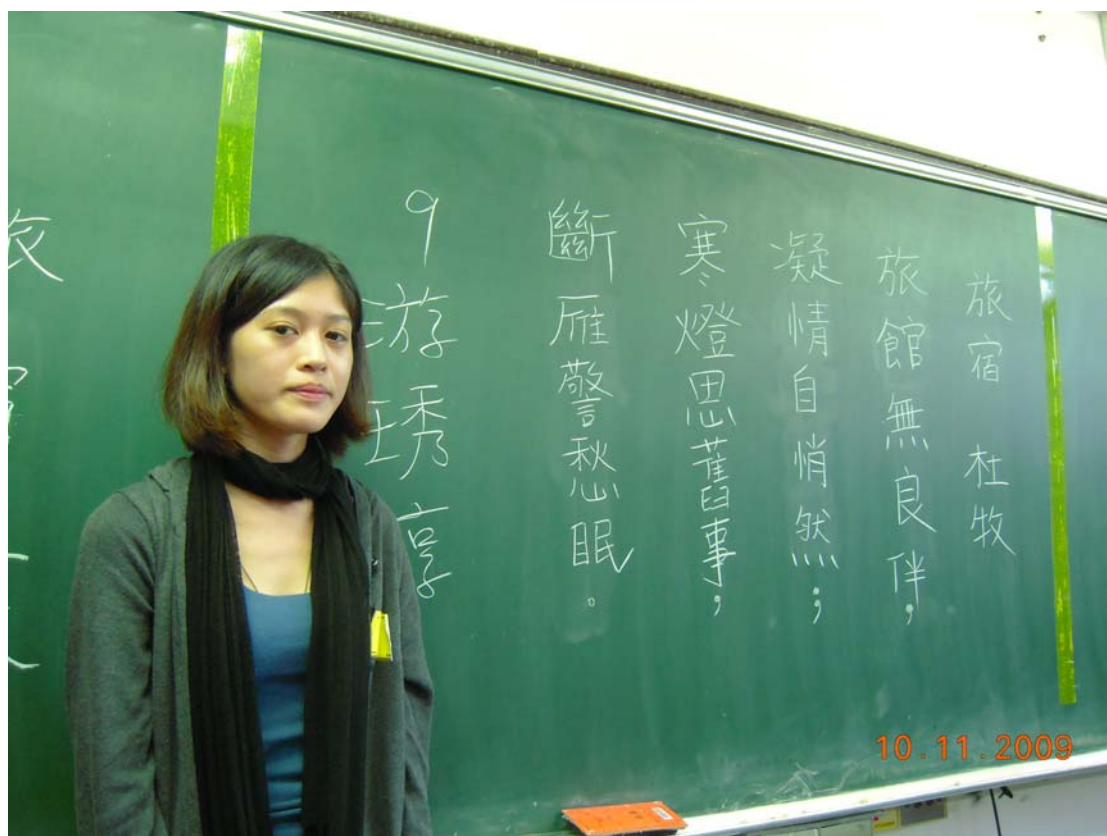 旅宿 杜牧
旅館無良伴；
凝情自悄然；
寒燈思舊事；
斷雁警愁眠。
9游琇享
10.11.2009